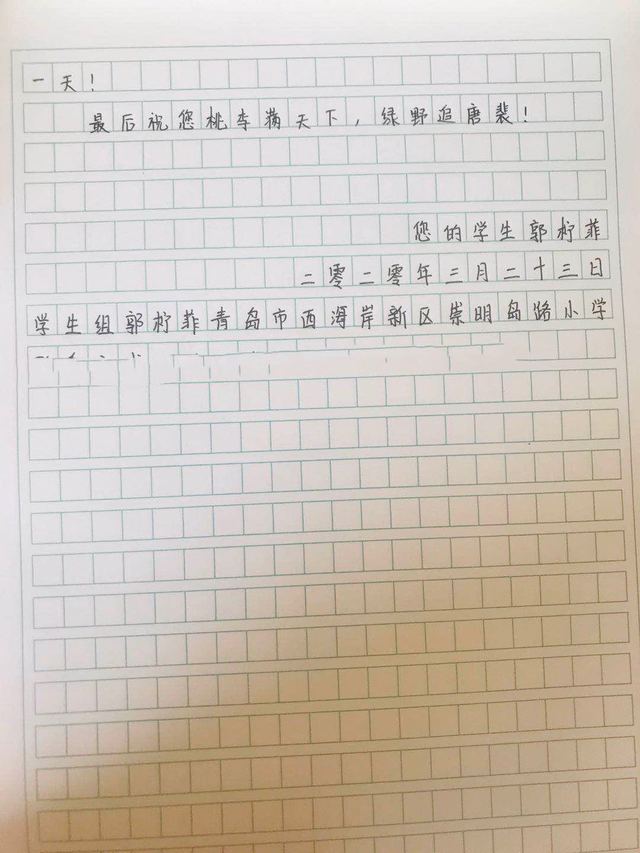 一天！
最后祝您桃李满天下，绿野追唐裴！
您的学生郭柠菲
二零二零年三月二十三日
学生组郭柠菲青岛市西海岸新区崇明岛路小学